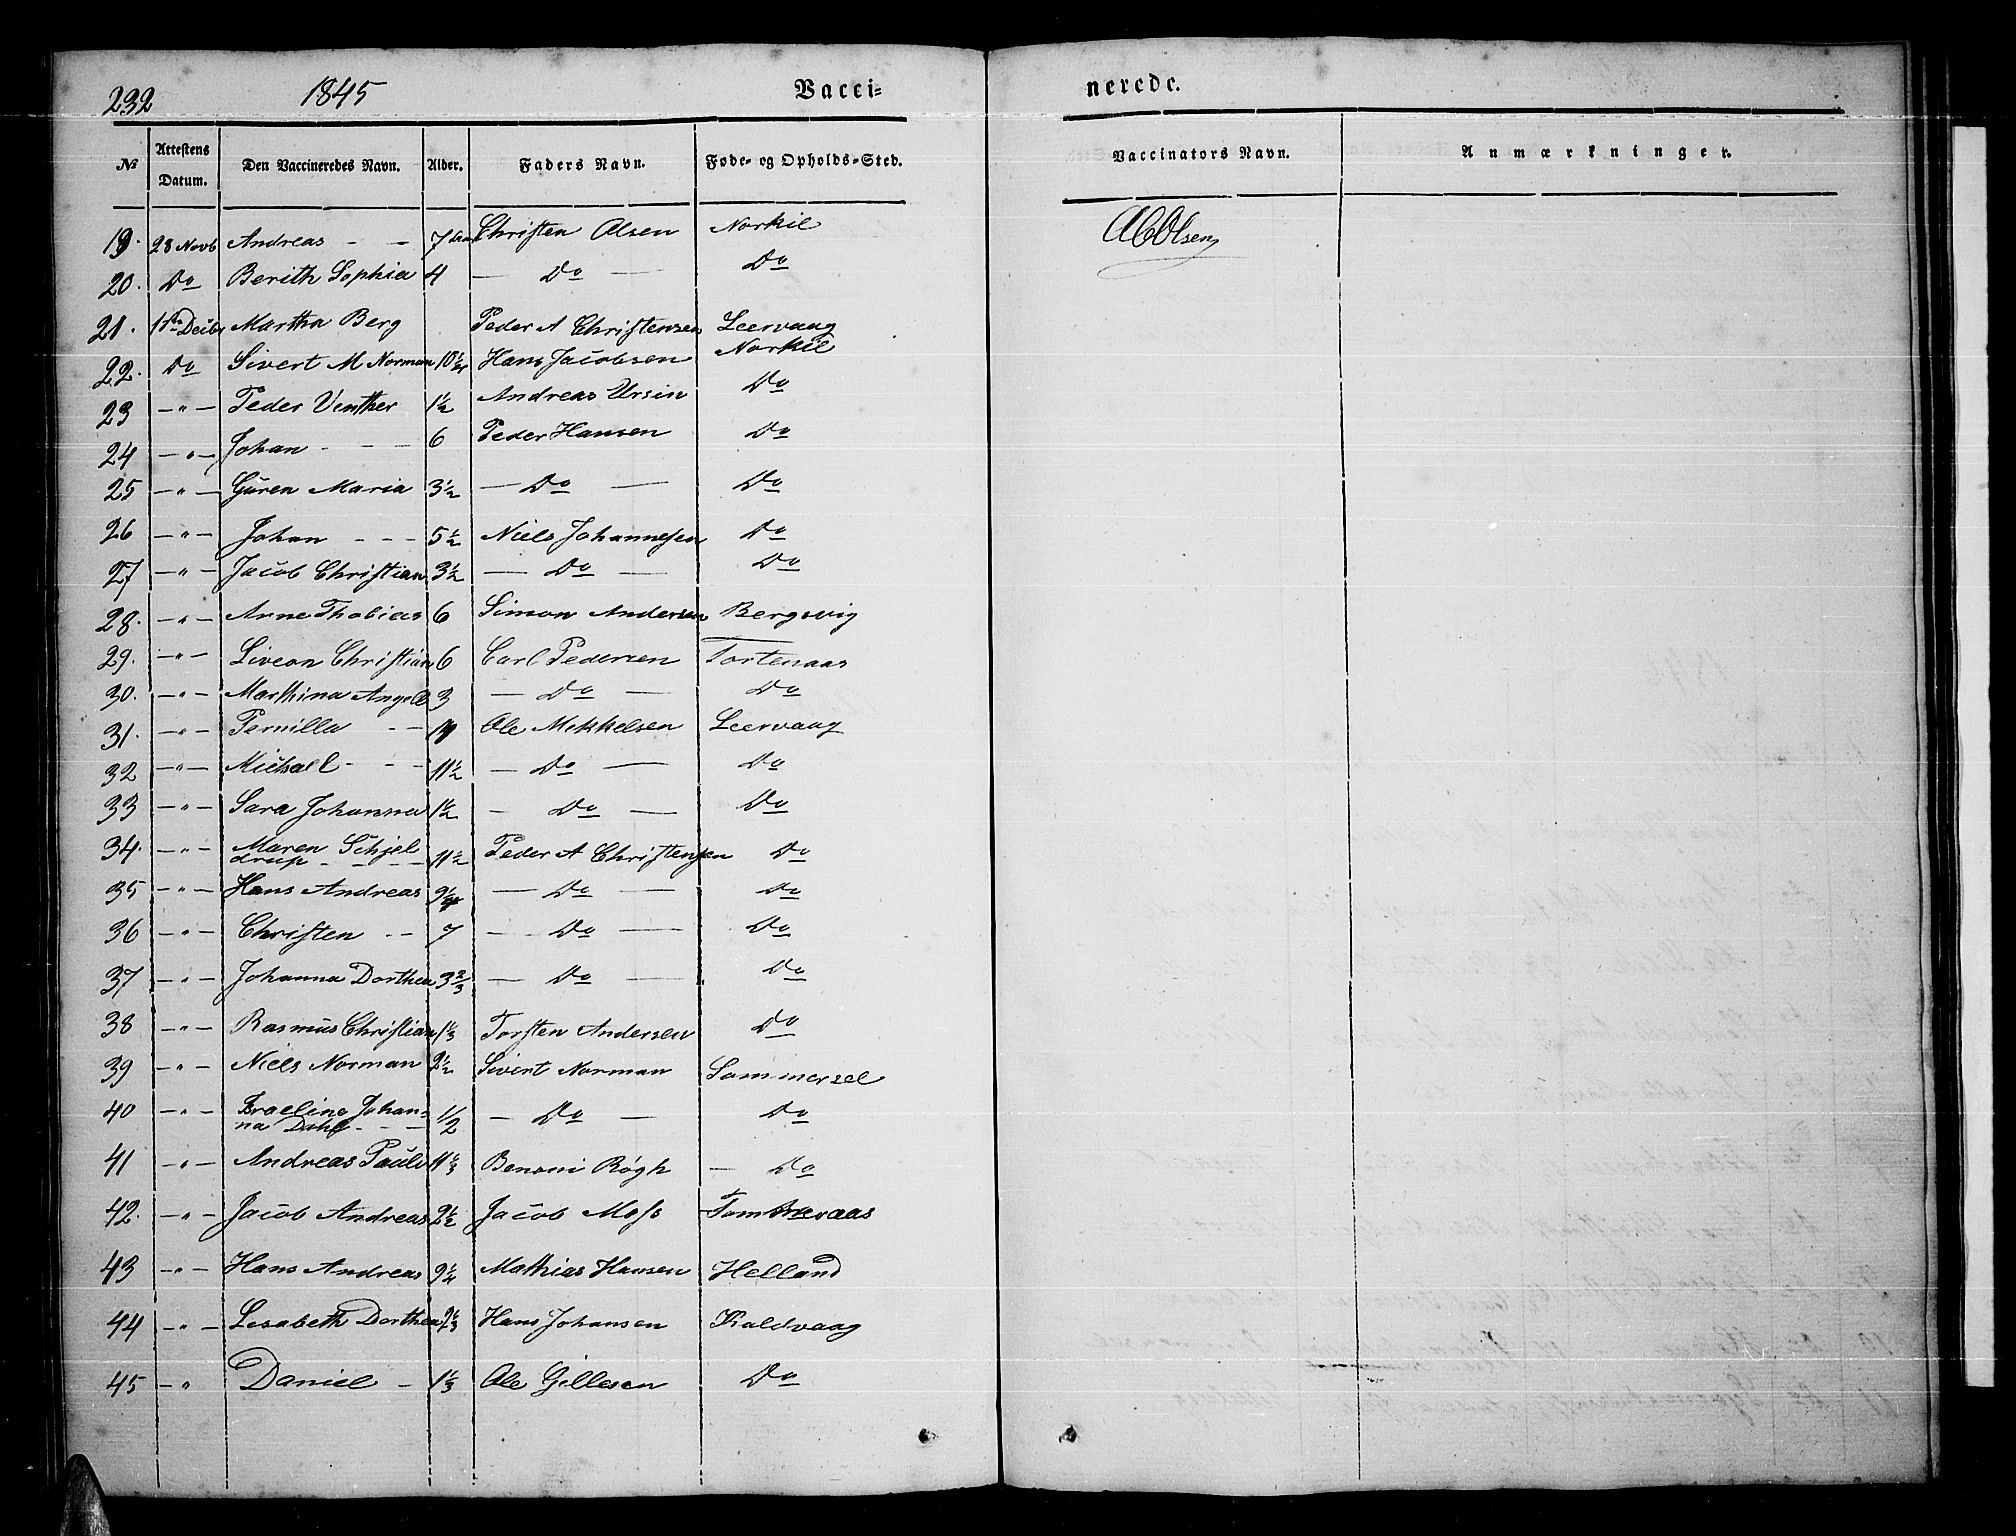 232 1845 Vacci- nerede.
No Attestens Datum. Den Vaccineredes Navn. Alder. Faders Navn. Føde- og Opholds-Sted. Vaccinators Navn. Anmærkninger.
19. 28 Novb Andreas - - 7 Christen Olsen Norkil AC Olsen
20. Do Berith Sophia 4 — Do — Do
21. Decbr Martha Berg Peder A Christensen Leervaag
22. Do Sivert M Norman 10 Hans Jacobsen Norkil
23 —"— Peder Venther 1½ Andreas Ursin Do
24 —"— Johan - - - 6 Peder Hansen Do
25 —"— Guren Maria 3½ — Do — Do
26 —"— Johan - - - 5½ Niels Johannesen Do
27 —"— Jacob Christian 3½ — Do — Do
28. —"— Arne Thobias 6 Simon Andersen Bergsvig
29. —"— Liveon Christian 6 Carl Pedersen Tortenaas
30. —"— Marthina Angell 3 — Do — Do
31. —"— Pernilla - - Ole Mikkelsen Leervaag
32 —"— Michael - - - 11½ — Do — Do
33 —"— Sara Johanna 1½ — Do — Do
34. —"— Maren Schjel
drup - - - - 11½ Peder A Christensen Do
35 —"— Hans Andreas 9½ — Do — Do
36 —"— Christen - - 7 — Do — Do
37 —"— Johanna Dorthea 3⅔ — Do — Do
38 —"— Rasmus Christian 1⅓ Torsten Andersen Do
39 —"— Niels Norman 2½ Sivert Norman Sommersel
40 —"— Johan-
na Dahl - - - 1/2 — Do — Do
41 —"— Andreas Paulv 11⅓ Benoni Røgh — Do
42. —"— Jacob Andreas 2½ Jacob Moss
43 —"— Hans Andreas 9¼ Mathias Hansen Helland
44 —"— Lesabeth Dorthea Hans Johansen Kaldvaag
45 —"— Daniel - 1⅓ Ole Gillesen Do